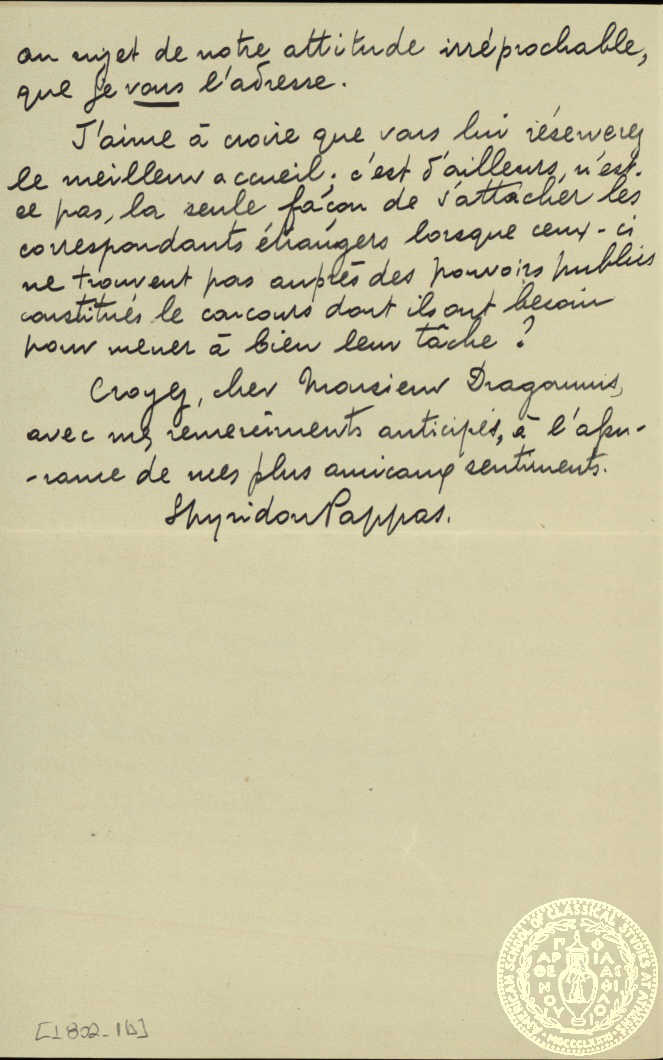 au sujet de notre attitude irréprochable,
que je vous l'adresse.
J'aime à croire que vous lui réserverez
le meilleur accueil. c'est d'ailleurs, n'est-
ce pas, la seule façon de s'attacher les
correspondants étrangers lorsque ceux-ci
ne trouvent pas auprès des pouvoirs publics
constitués le concours dont ils ont besoin
pour mener à bien leur tâche ?
Croyez, cher Monsieur Dragoumis,
avec mes remerciments anticipés, à l'assu-
-rance de mes plus amicaux sentiments.
Spyridon Pappas.
AMERICAN SCHOOL OF CLASSICAL STUDIES AT ATHENS
MDCCCLXXXI
ΠΑΡΘΕΝΟΥ
ΦΙΛΑΣ
[1802-1b]